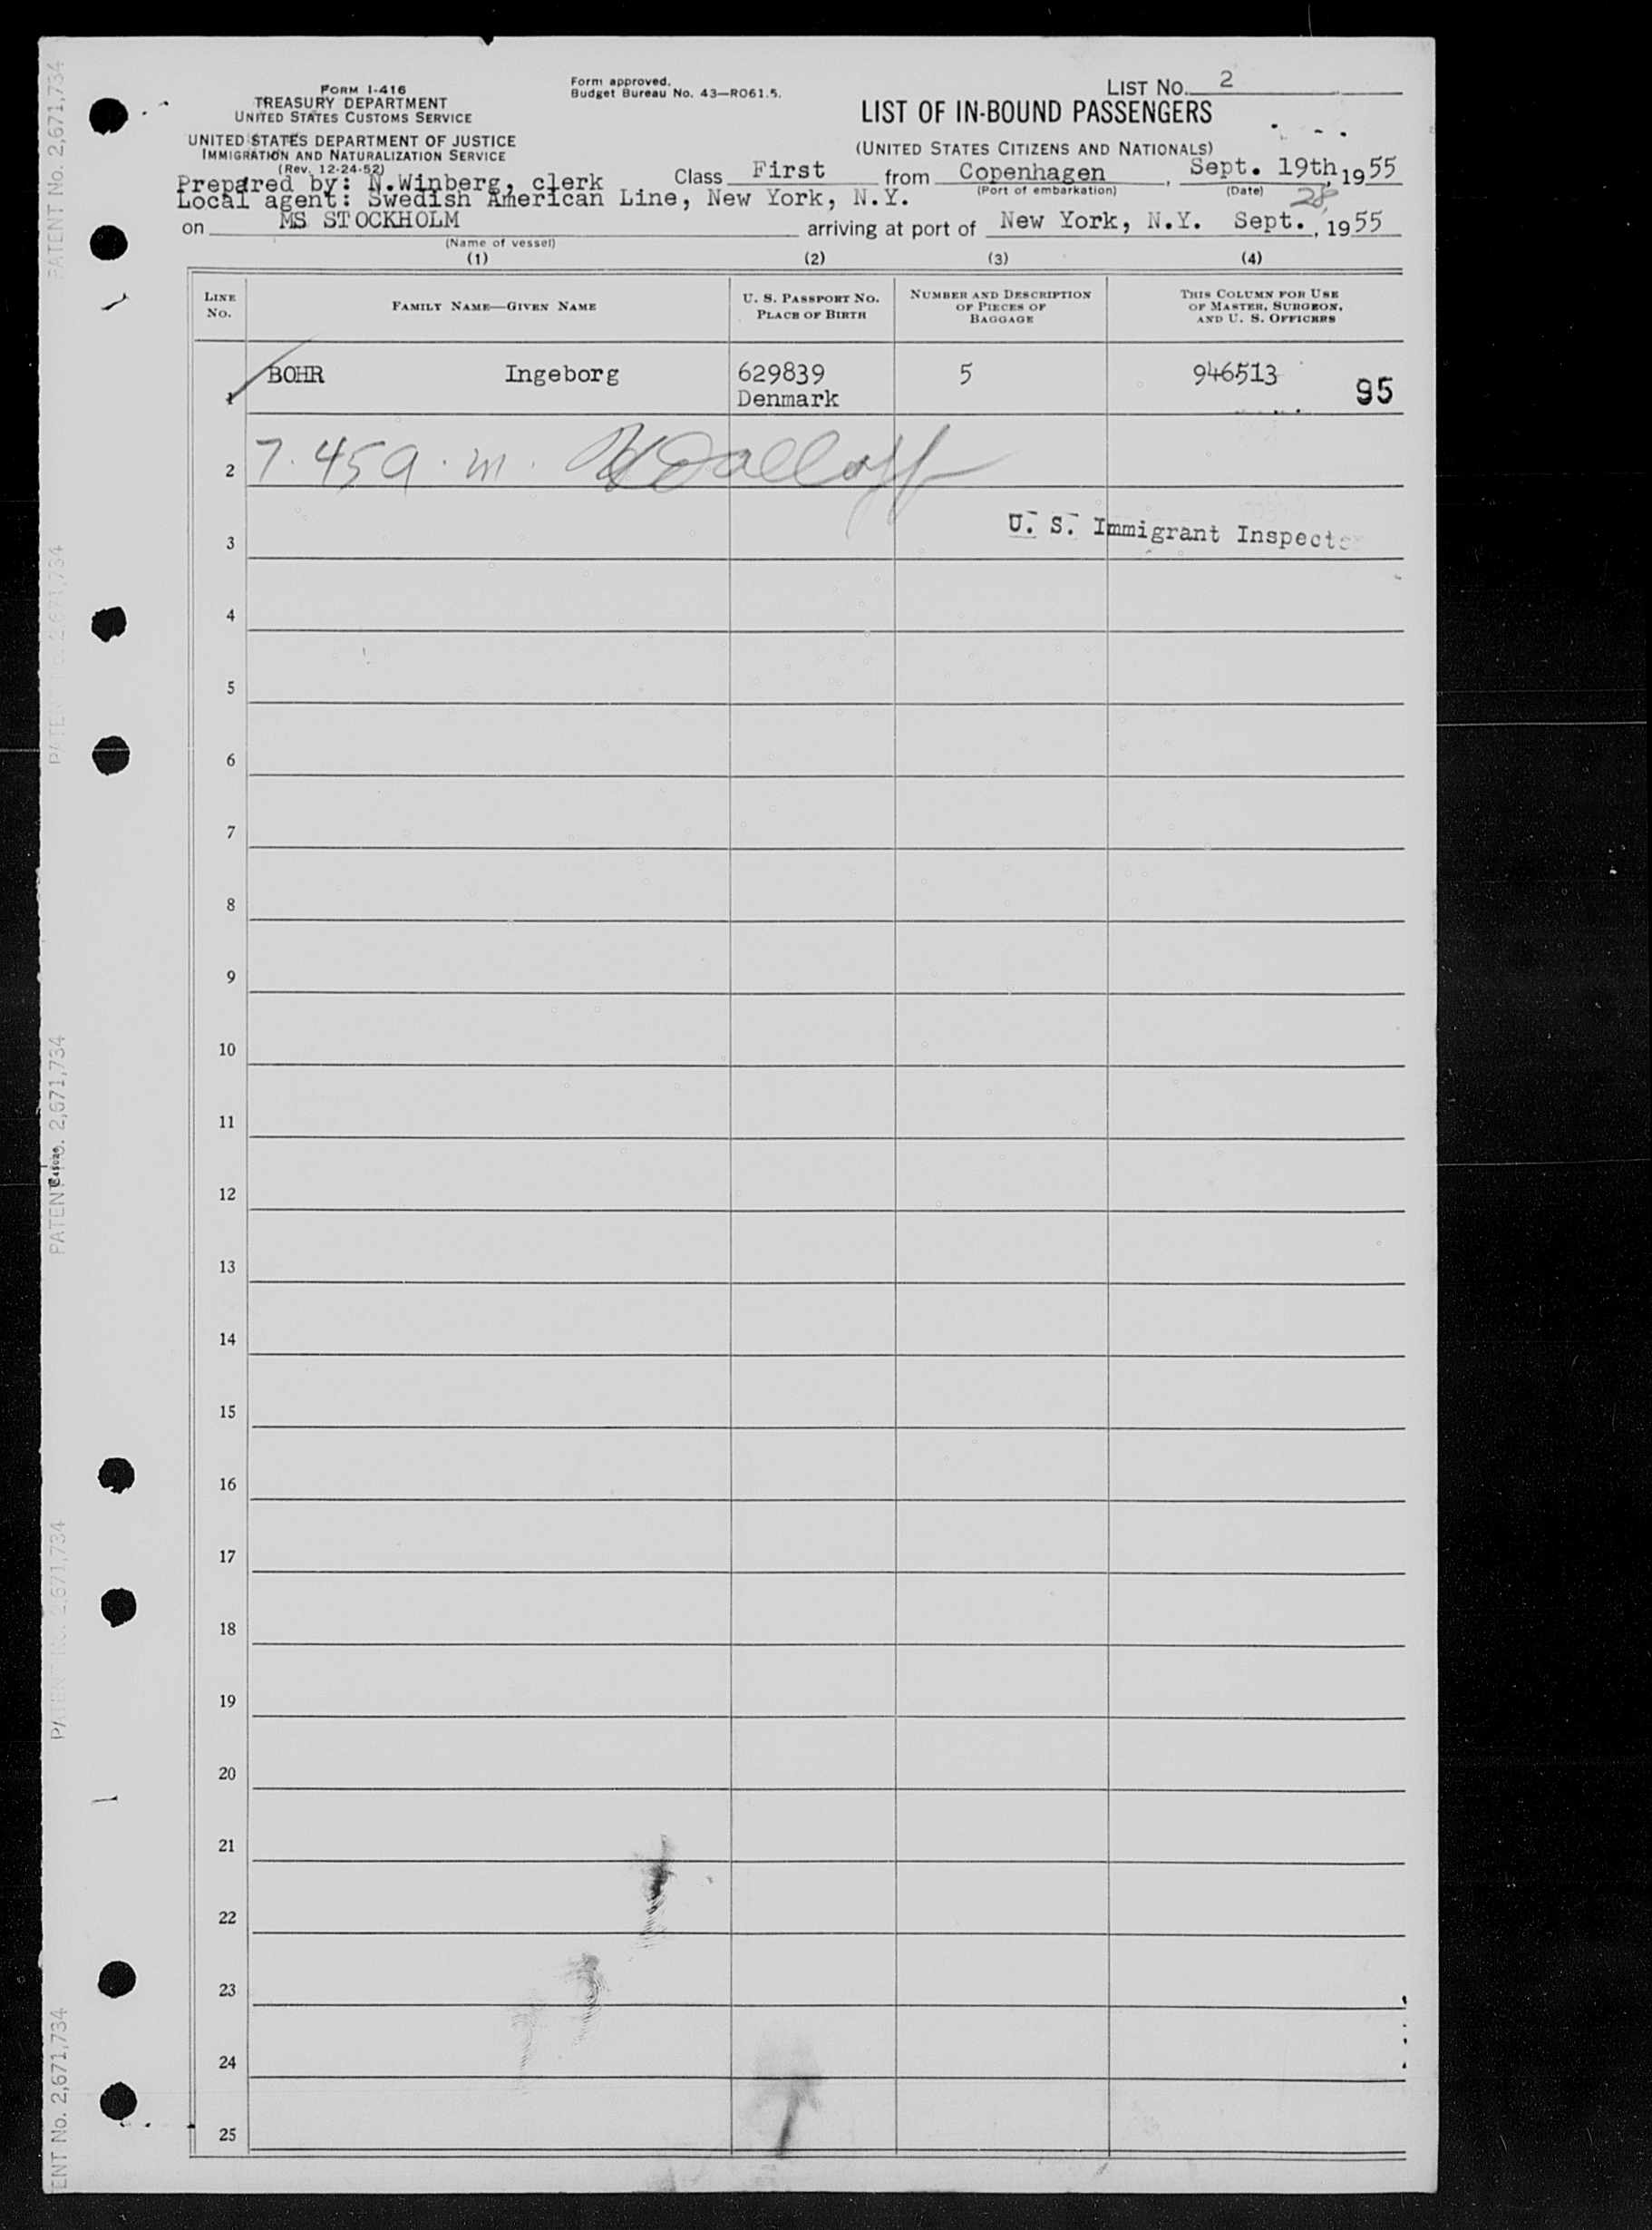 FORM I-416
TREASURY DEPARTMENT
UNITED STATES CUSTOMS SERVICE
UNITED STATES DEPARTMENT OF JUSTICE
IMMIGRATION AND NATURALIZATION SERVICE
(Rev. 12-24-52)
Form approved.
Budget Bureau No. 43—RO61.5.
LIST No. 2
LIST OF IN-BOUND PASSENGERS
(UNITED STATES CITIZENS AND NATIONALS)
Prepared by: N.Winberg, clerk
Class First from Copenhagen, Sept. 19th, 1955
(Port of embarkation) (Date)
Local agent: Swedish American Line, New York, N.Y.
28
on MS STOCKHOLM arriving at port of New York, N.Y. Sept., 1955
(Name of vessel)
(1) (2) (3) (4)
LINE NO.
FAMILY NAME—GIVEN NAME
U. S. PASSPORT NO.
PLACE OF BIRTH
NUMBER AND DESCRIPTION
OF PIECES OF
BAGGAGE
THIS COLUMN FOR USE
OF MASTER, SURGEON,
AND U. S. OFFICERS
1 BOHR Ingeborg 629839 5 946513 95
Denmark
2 7.45 a.m.
U. S. Immigrant Inspector
3
4
5
6
7
8
9
10
11
12
13
14
15
16
17
18
19
20
21
22
23
24
25
PATENT No. 2,671,734
PATENT No. 2,671,734
PATENT No. 2,671,734
PATENT No. 2,671,734
ENT No. 2,671,734